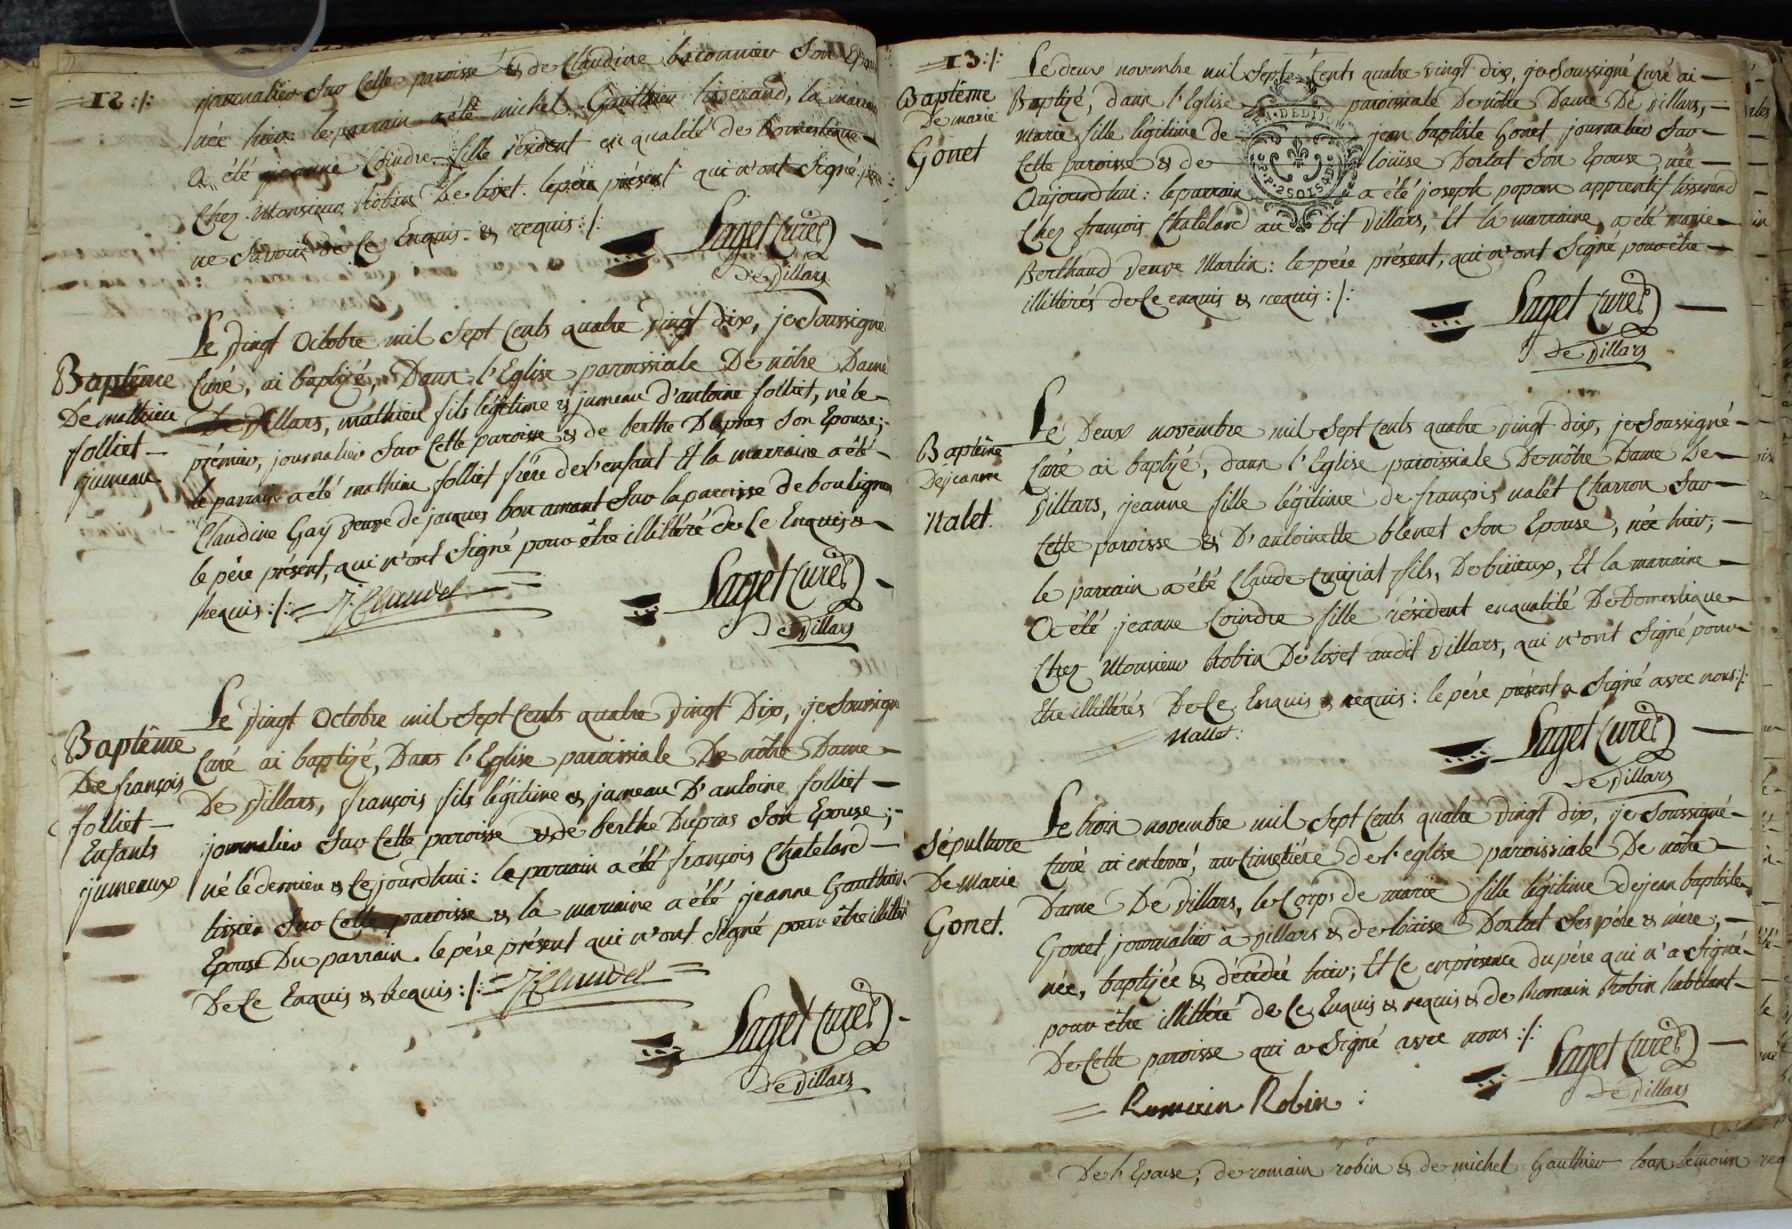 12:/:
journalier sur Cette paroisse & de Claudine baconnier son Epouse
née hier: le parrain a été michel Gauthier tisserand, la marraine
a été jeanne Coindre fille résident en qualité de Domestique
Chez Monsieur Robin De livet: le père présent qui n'ont signé pour
ne savoir de Ce Enquis & requis:/:
Saget Curé
De Villars
Baptême
De mathieu
folliet
jumeau
Le vingt Octobre mil sept Cents quatre vingt dix, je soussigné
Curé, ai baptizé, Dans l'Eglise paroissiale De nôtre Dame
De Villars, mathieu fils légitime & jumeau d'antoine folliet, né le
prémier, journalier sur Cette paroisse & de berthe Dupras son Epouse;
le parrain a été mathieu folliet frère de l'enfant Et la marraine a été
Claudine Gay veuve de jacques bon amant sur la paroisse de bouligneu
le père présent, qui n'ont signé pour être illitéré de Ce Enquis &
Requis:/:
Saget Curé
De Villars
Baptême
De françois
folliet
Enfants
jumeaux
Le vingt Octobre mil sept Cents quatre vingt Dix, je soussigné
Curé ai baptizé, Dans l'Eglise paroissiale De nôtre Dame
De Villars, françois fils légitime & jumeau D'antoine folliet
journalier sur Cette paroisse & de berthe Dupras son Epouse;
né le dernier & Cejourdhui: le parrain a été françois Chatelard
tissier sur Cette paroisse & la marraine a été jeanne Gauthier
Epouse Du parrain. le père présent qui n'ont signé pour être illitéré
De Ce Enquis & Requis:/:
Saget Curé
De Villars
13:/:
Baptême
De marie
Gonet
Le deux novembre mil sept Cents quatre vingt dix, je soussigné Curé ai
Baptizé, dans l'Eglise paroissiale De nôtre Dame De Villars,
marie fille légitime de jean baptiste Gonet journalier sur
Cette paroisse & de loüise Dortat son Epouse, née
Aujourdhui: le parrain a été joseph popon apprentif tisserand
Chez françois Chatelard au Dit Villars, Et la marraine a été marie
Berthaud veuve Martin: le père présent, qui n'ont signé pour être
illitérés de Ce enquis & requis:/:
Saget Curé
de Villars
Baptême
De jeanne
Nalet.
Le Deux novembre mil sept Cents quatre vingt dix, je soussigné
Curé ai baptizé, dans l'Eglise paroissiale De nôtre Dame De
Villars, jeanne fille légitime de françois nalet Charron sur
Cette paroisse & D'antoinette blenet son Epouse, née hier;
le parrain a été Claude fils, De birieux, Et la marraine
a été jeanne Coindre fille résident en qualité De Domestique
Chez Monsieur Robin De livet audit Villars, qui n'ont signé pour
Etre illitérés De Ce Enquis & requis: le père présent a signé avec nous:/:
Nallet:
Saget Curé
de Villars
Sépulture
De Marie
Gonet.
Le trois novembre mil sept Cents quatre vingt dix, je soussigné
Curé ai enterré, au Cimetière de l'eglise paroissiale De nôtre
Dame De Villars, le Corps de marie fille légitime de jean baptiste
Gonet journalier a Villars & de loüise Dortat ses père & mère;
née, baptizée & décédée hier; Et Ce en présence du père qui n'a signé
pour être illitéré de Ce Enquis & requis & de Romain Robin habitant
De Cette paroisse qui a signé avec nous:/:
Romain Robin:
Saget Curé
de Villars
De l'Epouse; de romain robin & de michel Gauthier tous témoins